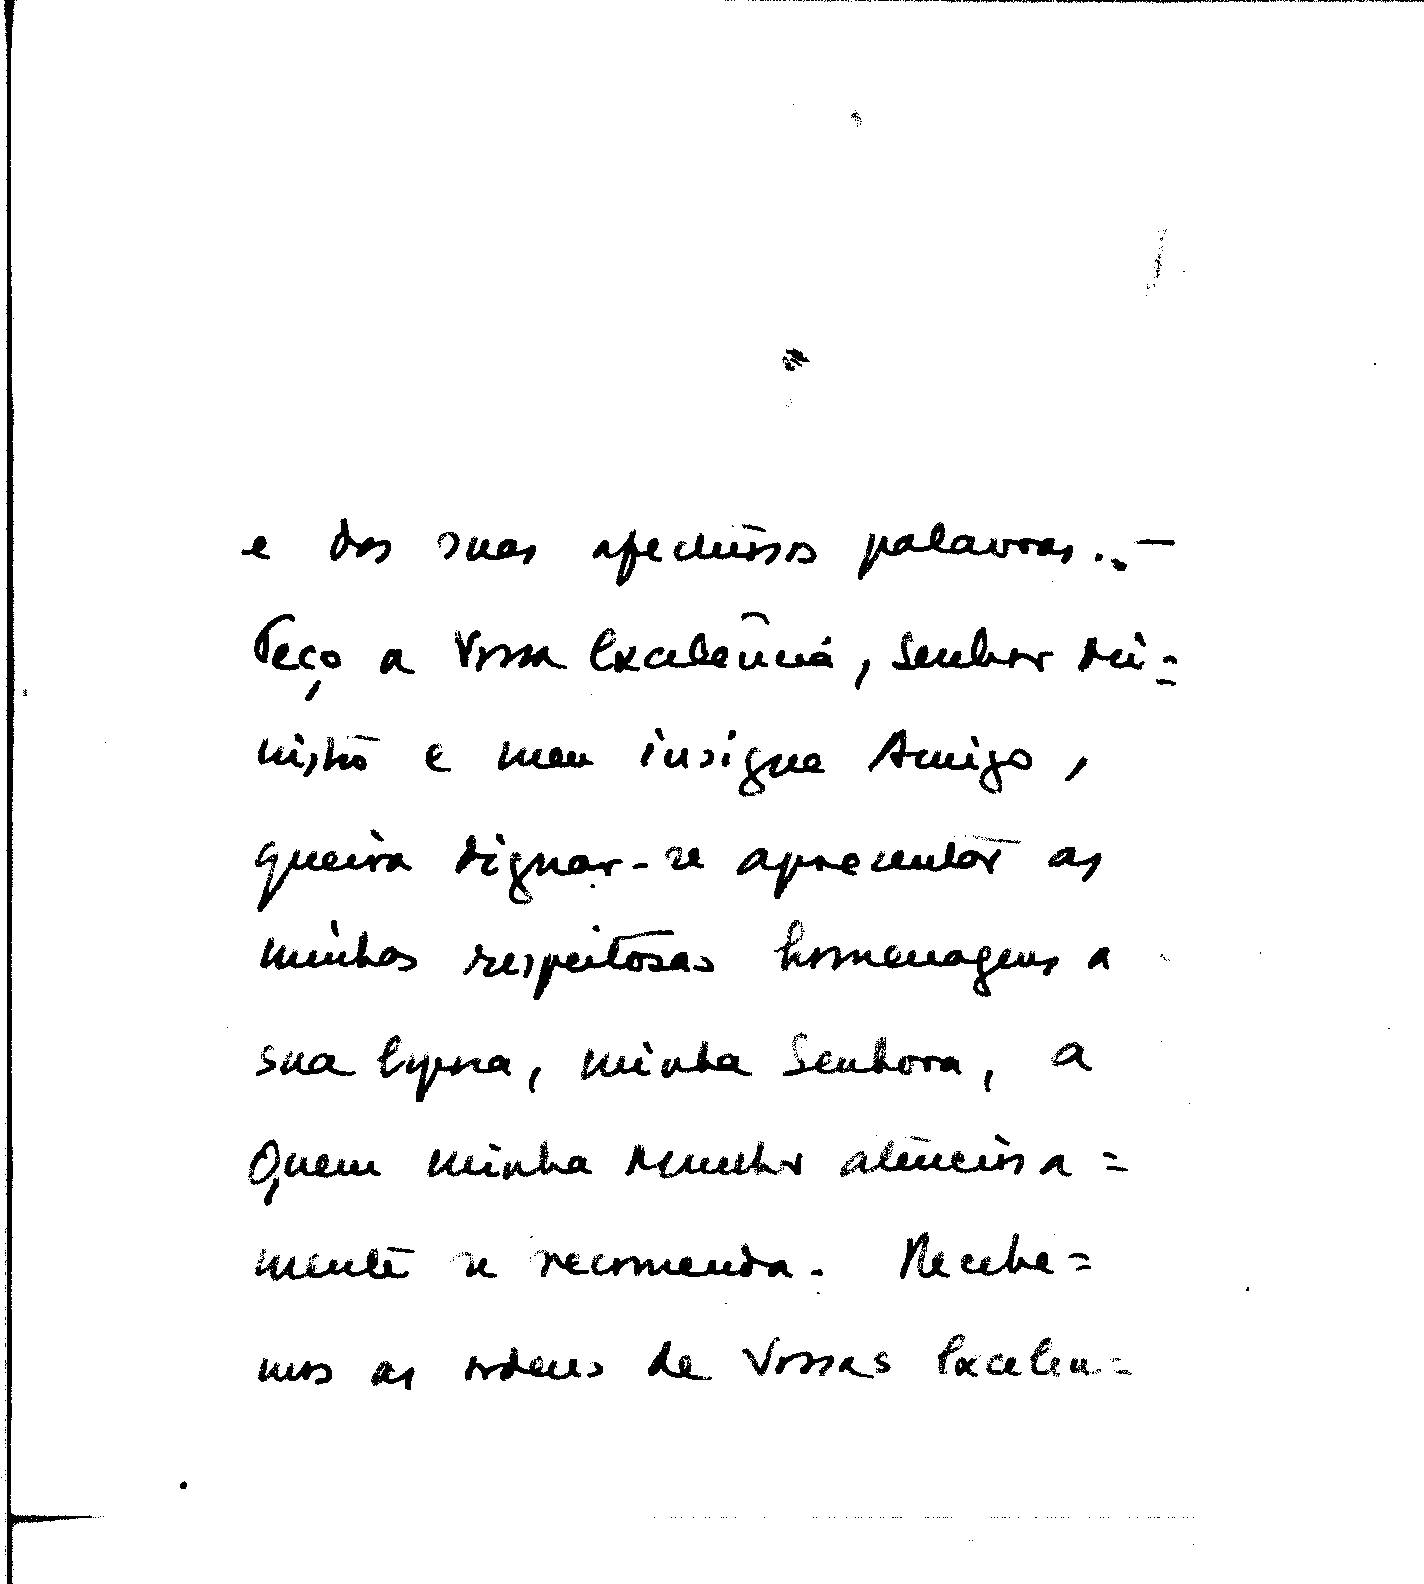 e das suas afectuosas palavras. —
Peço a Vossa Excelência, Senhor Mi=
nistro e meu insigne Amigo,
queira dignar-se apresentar as
minhas respeitosas homenagens a
sua Esposa, minha Senhora, a
Quem minha Mulher atenciosa=
mente se recomenda. Recebe=
mos as ordens de Vossas Excelen=